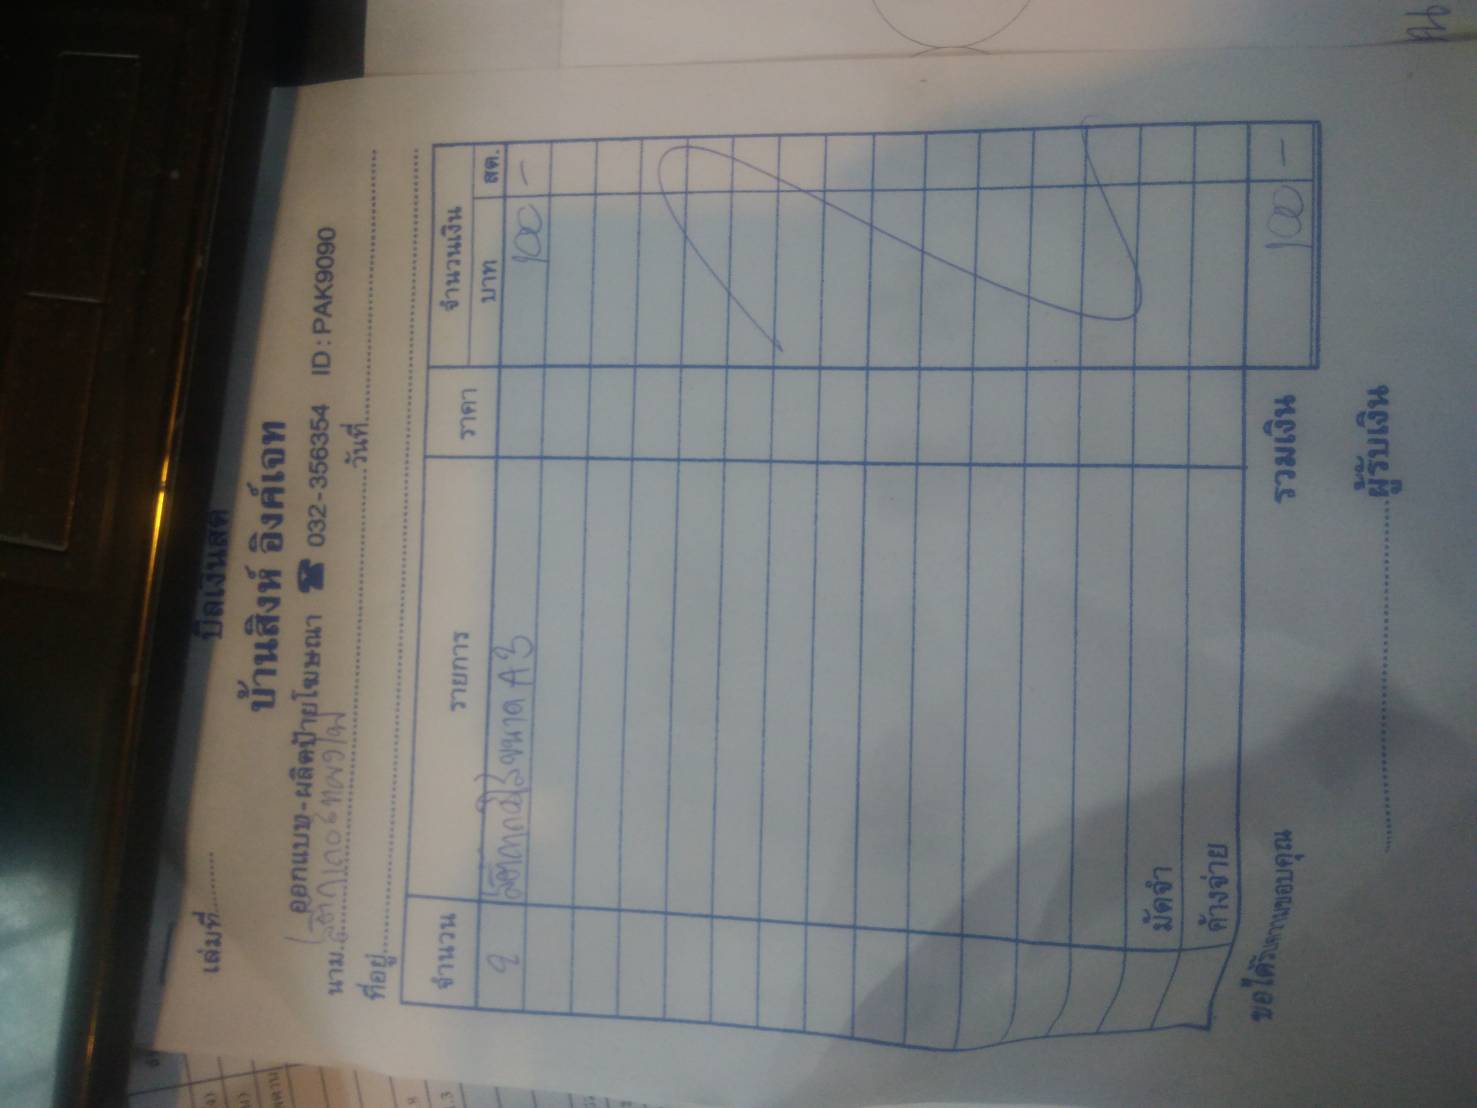 บิลเงินสด
เล่มที่..........
บ้านสิงห์ อิงค์เจท
ออกแบบ-ผลิตป้ายโฆษณา ☎ 032-356354 ID : PAK9090
นาม วันที่
ที่อยู่
จำนวน รายการ ราคา จำนวนเงิน
บาท สต.
2 ขนาด A3 100 -
มัดจำ
ค้างจ่าย
รวมเงิน 100 -
ขอได้รับความขอบคุณ
ผู้รับเงิน